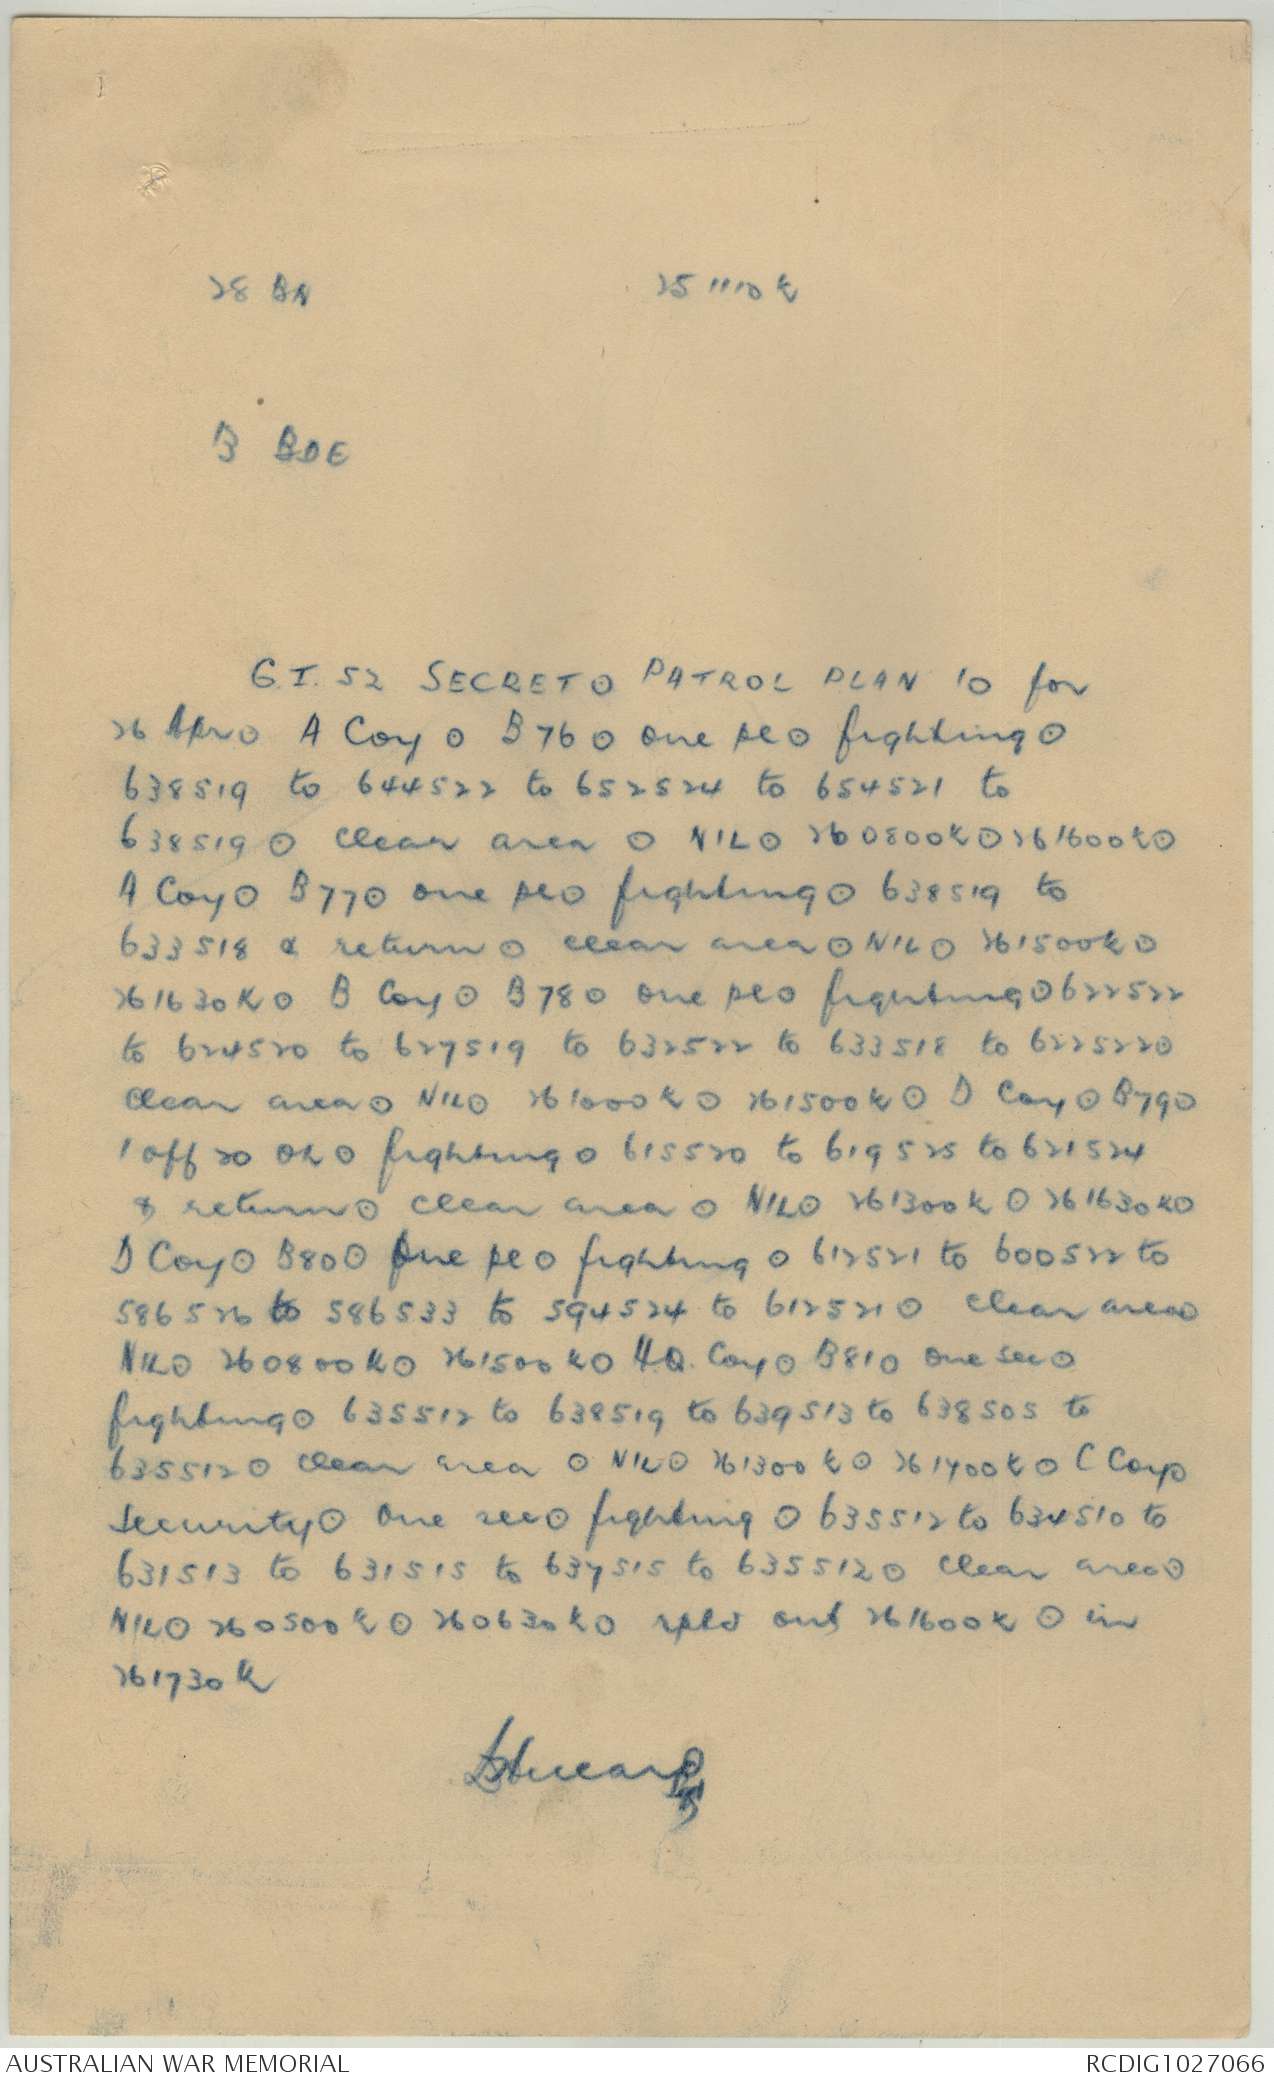 28 BN 25 1110 K
B BDE
G.I. 52 SECRET ⊙ PATROL PLAN 10 for
26 Apr ⊙ A Coy ⊙ B76 ⊙ one pl ⊙ fighting ⊙
638519 to 644522 to 652524 to 654521 to
638519 ⊙ clear area ⊙ NIL ⊙ 260800K ⊙ 261600K ⊙
A Coy ⊙ B77 ⊙ one pl ⊙ fighting ⊙ 638519 to
633518 & return ⊙ clear area ⊙ NIL ⊙ 261500K ⊙
261630K ⊙ B Coy ⊙ B78 ⊙ one pl ⊙ fighting ⊙ 622522
to 624520 to 627519 to 632522 to 633518 to 622522 ⊙
clear area ⊙ NIL ⊙ 261000K ⊙ 261500K ⊙ D Coy ⊙ B79 ⊙
1 off 20 OR ⊙ fighting ⊙ 615520 to 619525 to 621524
& return ⊙ clear area ⊙ NIL ⊙ 261300K ⊙ 261630K ⊙
D Coy ⊙ B80 ⊙ One pl ⊙ fighting ⊙ 612521 to 600522 to
586526 to 586533 to 594524 to 612521 ⊙ clear area ⊙
NIL ⊙ 260800K ⊙ 261500K ⊙ H.Q. Coy ⊙ B81 ⊙ one sec ⊙
fighting ⊙ 635512 to 638519 to 639513 to 638505 to
635512 ⊙ clear area ⊙ NIL ⊙ 261300K ⊙ 261400K ⊙ C Coy ⊙
Security ⊙ one sec ⊙ fighting ⊙ 635512 to 634510 to
631513 to 631515 to 637515 to 635512 ⊙ clear area ⊙
NIL ⊙ 260500K ⊙ 260630K ⊙ rptd out 261600K ⊙ in
261730K
AUSTRALIAN WAR MEMORIAL RCDIG1027066